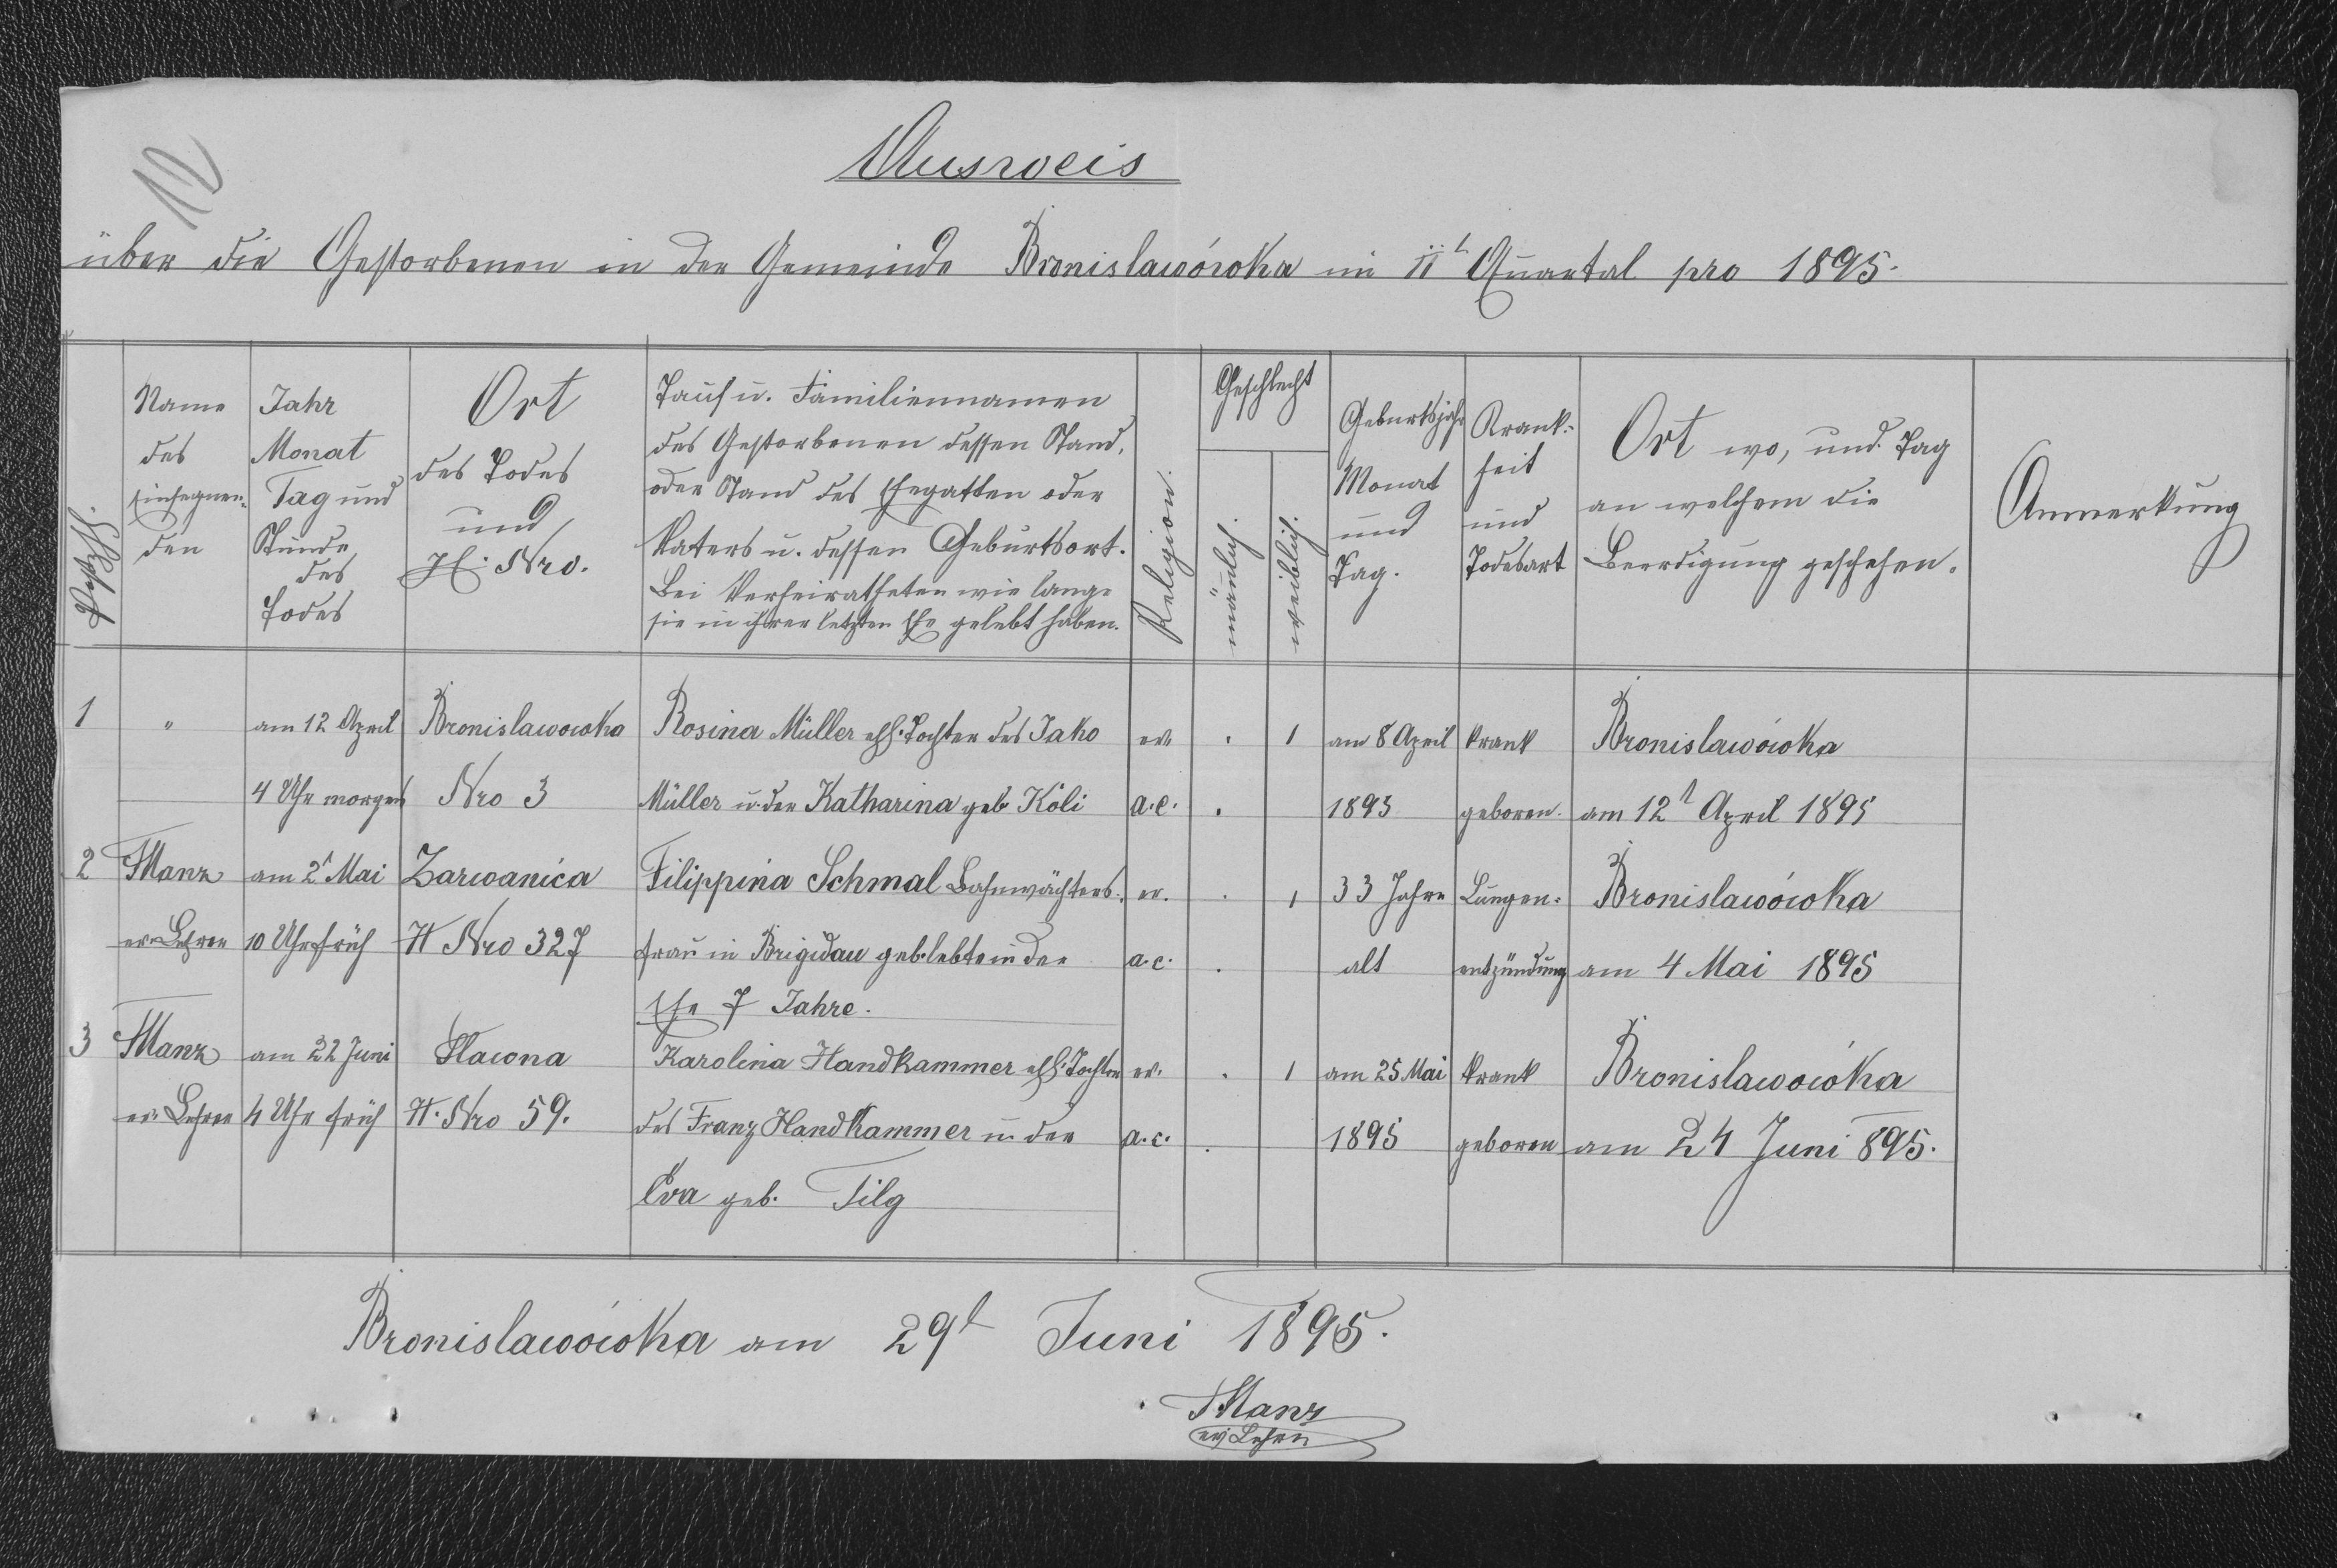 12
Ausweis
über die Gestorbenen in der Gemeinde Bronislawówka im IIt Quartal pro 1895.
Postzhl.
Name
des
Einsegnen-
den
Jahr
Monat
Tag und
Stunde
des
Todes
Ort
des Todes
und
H. Nro.
Tauf u. Familiennamen
des Gestorbenen dessen Stand,
oder Stand des Ehegatten oder
Vaters u. dessen Geburtsort.
Bei Verheiratheten wie lange
sie in ihrer letzten Ehe gelebt haben.
Religion.
Geschlecht
mänlich.
weiblich.
Geburtsjahr
Monat
und
Tag.
Krank-
heit
und
Todesart
Ort wo, und Tag
an welchem die
Beerdigung geschehen.
Anmerkung
1 " am 12 April Bronislawowka Rosina Müller ehl. Tochter des Jako ev. . 1 am 8 April krank Bronislawówka
4 Uhr morgens Nro 3 Müller u. der Katharina geb Köli a.c. . 1895 geboren. am 12t April 1895
2 Manz am 2t Mai Zarwanica Filippina Schmal Bahnwächters. ev. . 1 33 Jahre Lungen- Bronislawówka
ev. Lehrer 10 Uhr früh H Nro 327 frau in Brigidau geb. lebte in der a.c. . alt entzündung am 4 Mai 1895
Ehe 7 Jahre.
3 Manz am 22 Juni Slawna Karolina Handkammer ehl. Tochter ev. . 1 am 25 Mai krank Bronislawowka
ev. Lehrer 4 Uhr früh H. Nro 59. des Franz Handkammer u. der a.c. . 1895 geboren am 24 Juni 895.
Eva geb. Filg
Bronislawówka am 29t Juni 1895.
Manz
ev. Lehrer